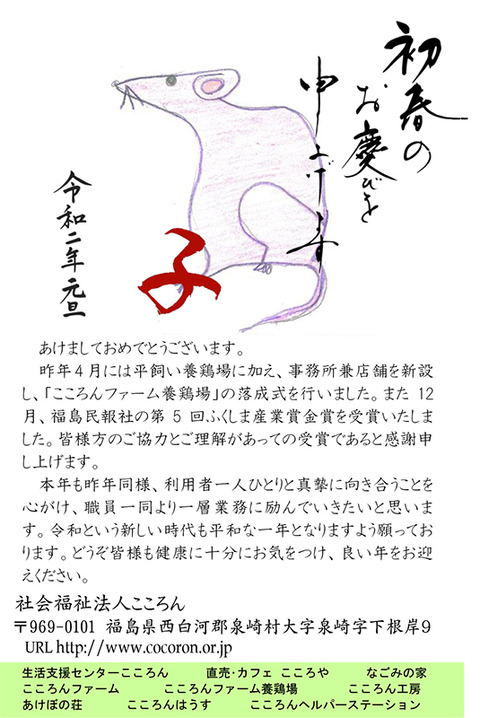 初春の
お慶びを
申し上げます
令和二年 元旦
子
あけましておめでとうございます。
昨年4月には平飼い養鶏場に加え、事務所兼店舗を新設
し、「こころんファーム養鶏場」の落成式を行いました。また 12
月、福島民報社の第 5 回ふくしま産業賞金賞を受賞いたしま
した。皆様方のご協力とご理解があっての受賞であると感謝申
し上げます。
本年も昨年同様、利用者一人ひとりと真摯に向き合うことを
心がけ、職員一同より一層業務に励んでいきたいと思いま
す。令和という新しい時代も平和な一年となりますよう願ってお
ります。どうぞ皆様も健康に十分にお気をつけ、良い年をお迎
えください。
社会福祉法人こころん
〒969-0101 福島県西白河郡泉崎村大字泉崎字下根岸9
URL http://www.cocoron.or.jp
生活支援センターこころん 直売・カフェ こころや なごみの家
こころんファーム こころんファーム養鶏場 こころん工房
あけぼの荘 こころんはうす こころんヘルパーステーション